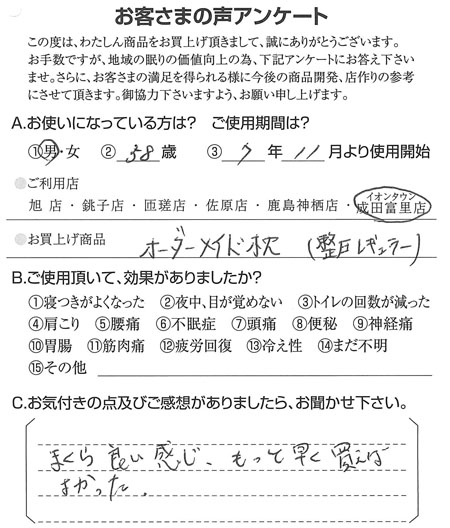 お客さまの声アンケート
この度は、わたしん商品をお買上げ頂きまして、誠にありがとうございます。
お手数ですが、地域の眠りの価値向上の為、下記アンケートにお答え下さい
ませ。さらに、お客さまの満足を得られる様に今後の商品開発、店作りの参考
にさせて頂きます。御協力下さいますよう、お願い申し上げます。
A.お使いになっている方は? ご使用期間は?
①男・女 ②58歳 ③7年11月より使用開始
●ご利用店
イオンタウン
旭店・銚子店・匝瑳店・佐原店・鹿島神栖店・成田富里店
●お買上げ商品 オーダーメイド枕 (整圧レギュラー)
B.ご使用頂いて、効果がありましたか?
①寝つきがよくなった ②夜中、目が覚めない ③トイレの回数が減った
④肩こり ⑤腰痛 ⑥不眠症 ⑦頭痛 ⑧便秘 ⑨神経痛
⑩胃腸 ⑪筋肉痛 ⑫疲労回復 ⑬冷え性 ⑭まだ不明
⑮その他
C.お気付きの点及びご感想がありましたら、お聞かせ下さい。
まくら良い感じ、もっと早く買えば
よかった。